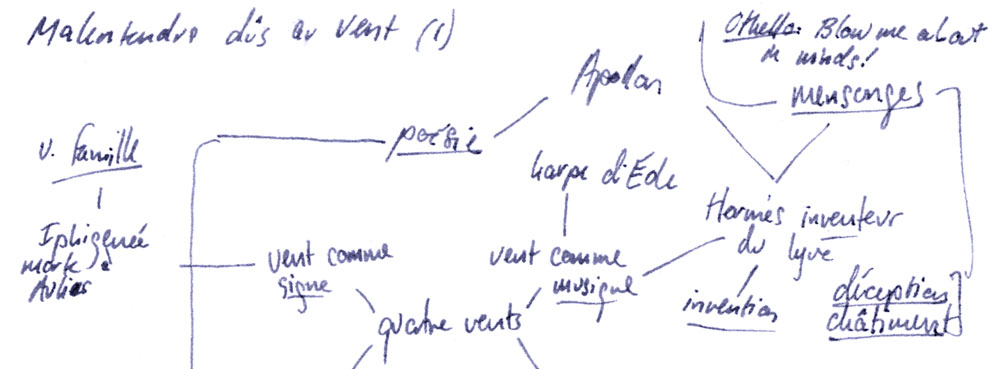 Malentendre dûs au vent (1)
Othello: Blow me about
in winds!
mensonges
Apollon
poésie
v. Famille
harpe d'Éole
Iphigeneé
morte à
Aulies
vent comme
signe
vent comme
musique
Hermés inventeur
du lyre
quatre vents
invention
déception
châtiment